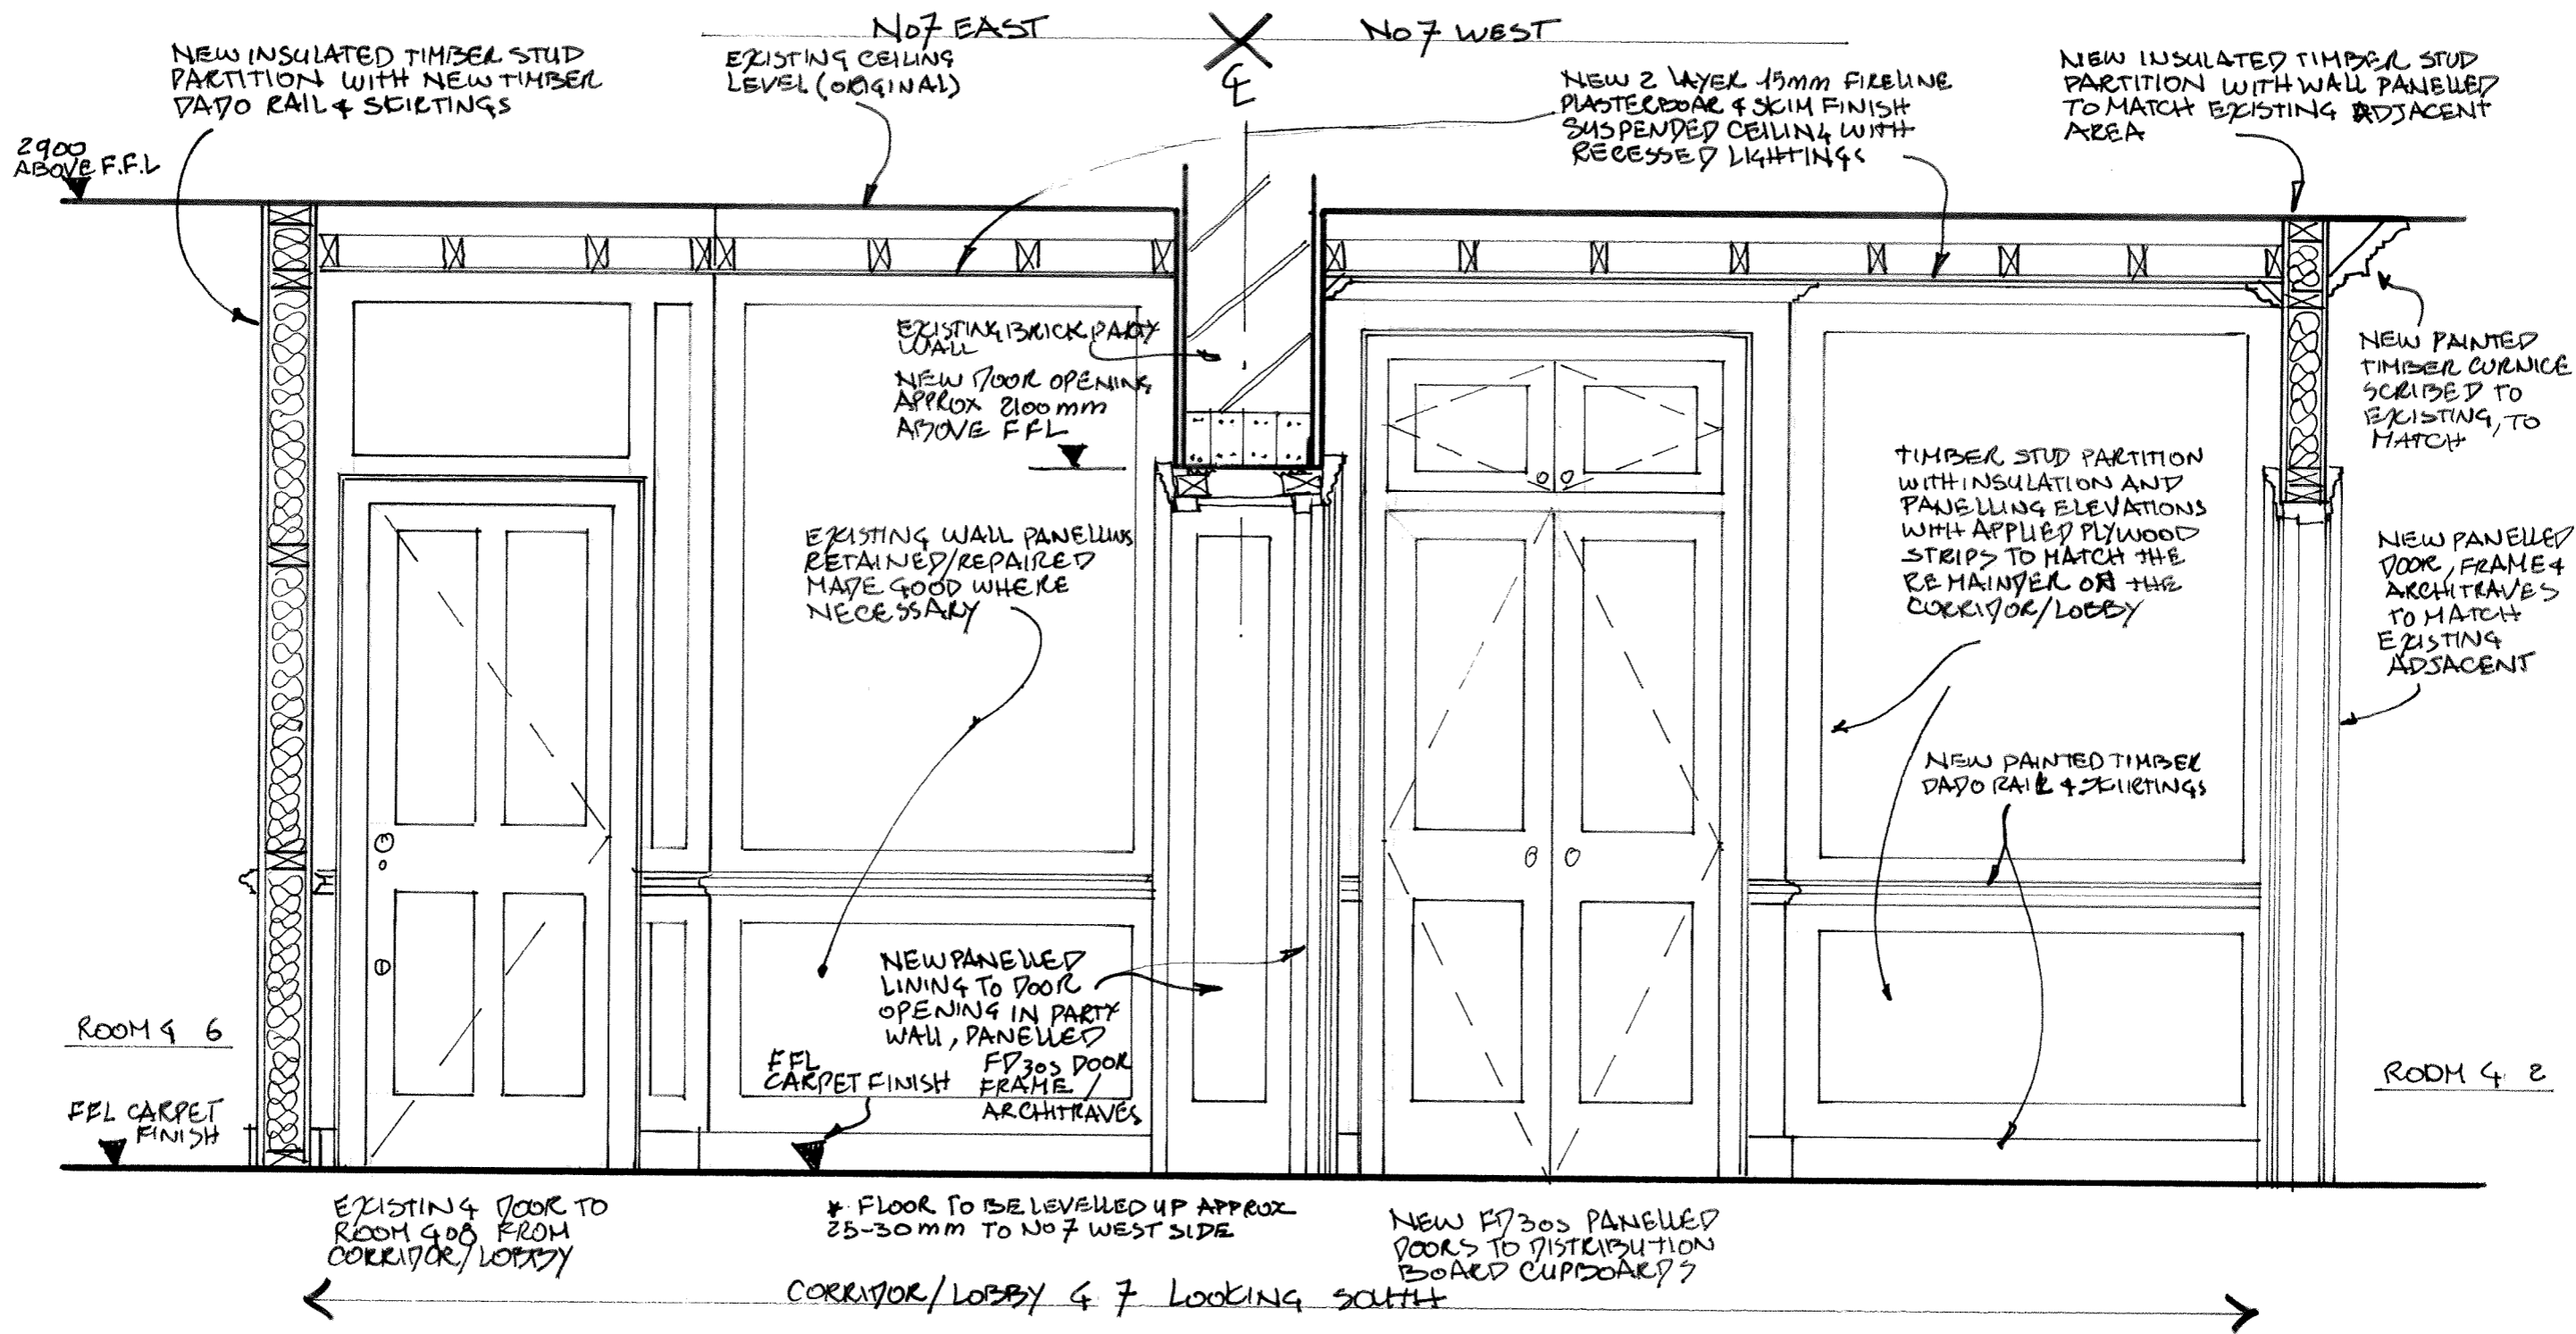 No7 EAST
No7 WEST
CL
NEW INSULATED TIMBER STUD
PARTITION WITH NEW TIMBER
DADO RAIL & SKIRTINGS
EXISTING CEILING
LEVEL (ORIGINAL)
NEW 2 LAYER 15mm FIRELINE
PLASTERBOAR & SKIM FINISH
SUSPENDED CEILING WITH
RECESSED LIGHTINGS
NEW INSULATED TIMBER STUD
PARTITION WITH WALL PANELLED
TO MATCH EXISTING ADJACENT
AREA
2900
ABOVE F.F.L
EXISTING BRICK PARTY
WALL
NEW DOOR OPENING
APPROX 2100mm
ABOVE FFL
NEW PAINTED
TIMBER CURNICE
SCRIBED TO
EXISTING, TO
MATCH
EXISTING WALL PANELLING
RETAINED/REPAIRED
MADE GOOD WHERE
NECESSARY
TIMBER STUD PARTITION
WITH INSULATION AND
PANELLING ELEVATIONS
WITH APPLIED PLYWOOD
STRIPS TO MATCH THE
REMAINDER OF THE
CORRIDOR/LOBBY
NEW PANELLED
DOOR, FRAME &
ARCHITRAVES
TO MATCH
EXISTING
ADJACENT
NEW PAINTED TIMBER
DADO RAIL & SKIRTINGS
NEW PANELLED
LINING TO DOOR
OPENING IN PARTY
WALL, PANELLED
FD30S DOOR
FRAME /
ARCHITRAVES
FFL
CARPET FINISH
ROOM G 6
ROOM G 2
FFL CARPET
FINISH
EXISTING DOOR TO
ROOM G08 FROM
CORRIDOR/LOBBY
* FLOOR TO BE LEVELLED UP APPROX
25-30mm TO No7 WEST SIDE
NEW FD30S PANELLED
DOORS TO DISTRIBUTION
BOARD CUPBOARDS
CORRIDOR/LOBBY G 7 LOOKING SOUTH